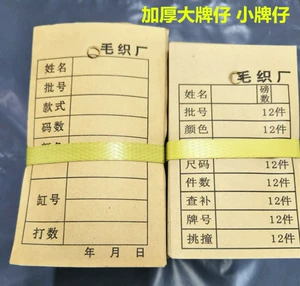 加厚大牌仔 小牌仔
毛织厂
姓名
批号
款式
码数
缸号
打数
年 月 日
毛织厂
姓名 磅数
批号 12件
颜色 12件
尺码 12件
件数 12件
查补 12件
牌号 12件
挑撞 12件